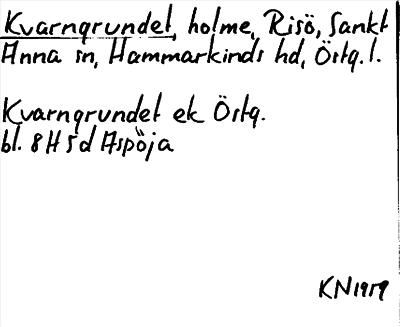 Kvarngrundet, holme, Risö, Sankt
Anna sn, Hammarkinds hd, Östg. l.
Kvarngrundet ek Östg.
bl. 8H5d Aspöja
KN1959